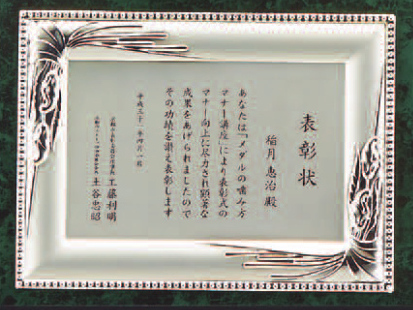 表彰状
稲月恵治殿
あなたは「メダルの噛み方
マナー講座」により表彰式の
マナー向上に尽力され顕著な
成果をあげられましたので
その功績を讃え表彰します
平成二十一年四月一日
工藤利明
土谷忠昭